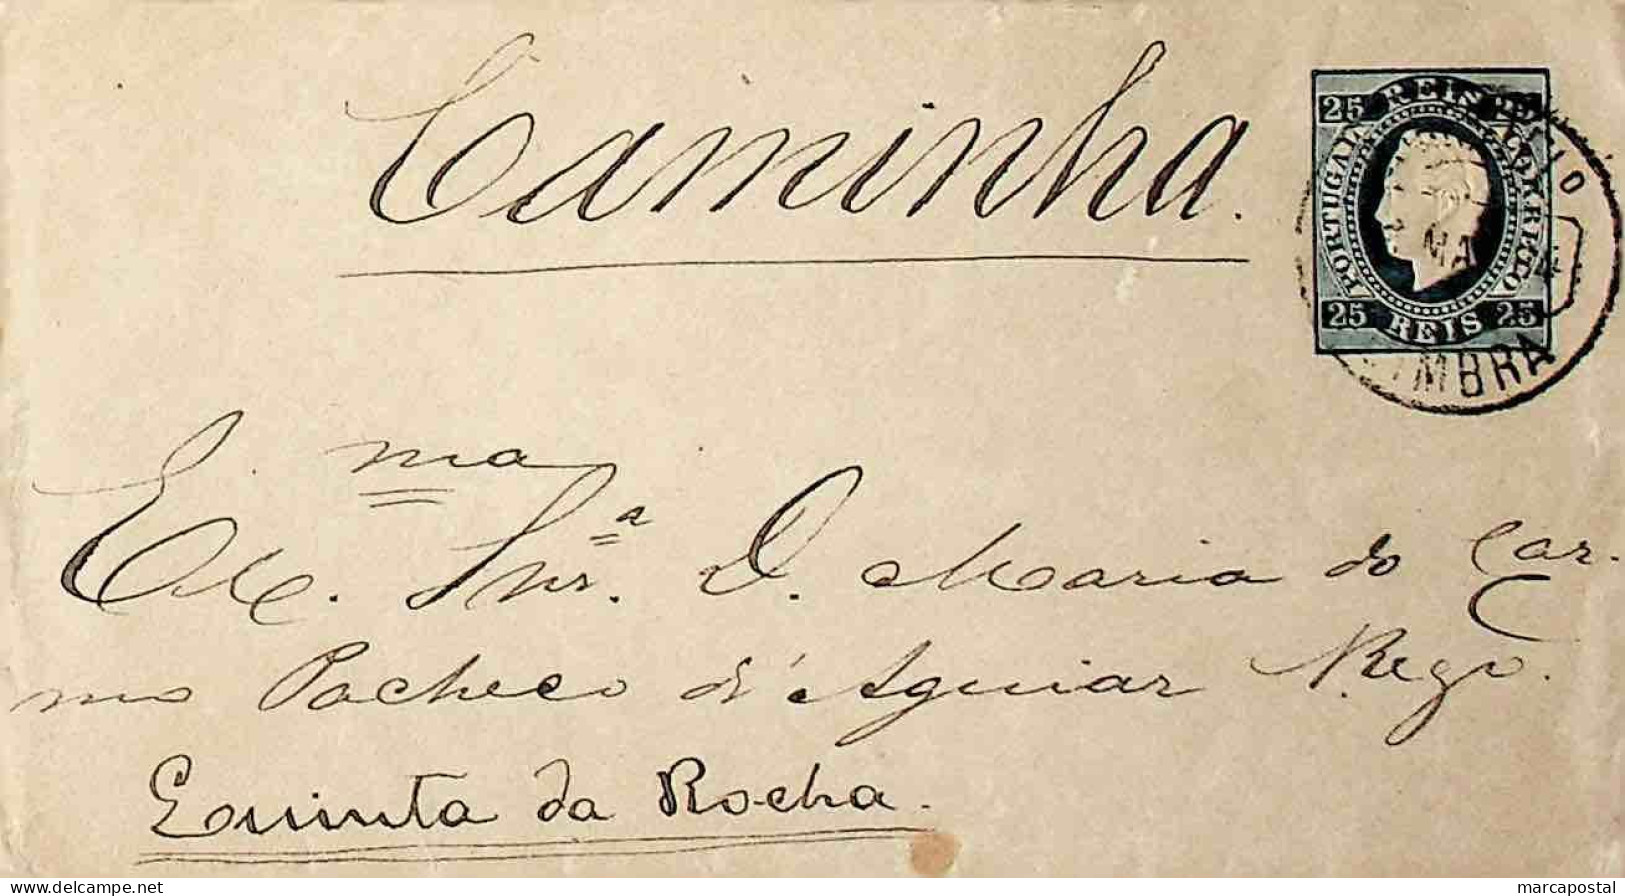 Caminha.
25 REIS 25
PORTUGAL CORREIO
25 REIS 25
MBRA
Ex.ma Snr.a D. Maria do Car-
mo Pacheco d'Aguiar Rego.
Quinta da Rocha.
delcampe.net
marcapostal